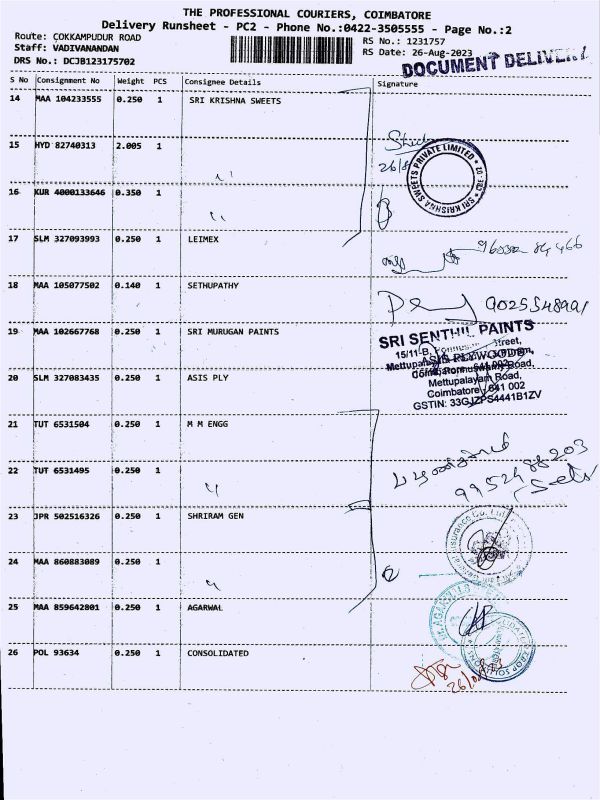 THE PROFESSIONAL COURIERS, COIMBATORE
Delivery Runsheet - PC2 - Phone No.:0422-3505555 - Page No.:2
Route: COKKAMPUDUR ROAD
RS No.: 1231757
Staff: VADIVANANDAN
RS Date: 26-Aug-2023
DRS No.: DCJB123175702
DOCUMENT DELIVERY
S No Consignment No Weight PCS Consignee Details Signature
14 MAA 104233555 0.250 1 SRI KRISHNA SWEETS
15 HYD 82740313 2.005 1
26/8
SRI KRISHNA SWEETS PRIVATE LIMITED
16 KUR 4000133646 0.350 1
17 SLM 327093993 0.250 1 LEIMEX
18 MAA 105077502 0.140 1 SETHUPATHY
19 MAA 102667768 0.250 1 SRI MURUGAN PAINTS
SRI SENTHIL PAINTS
15/11-B, Street,
ASIS PLYWOODS
Road,
Mettupalayam Road,
Coimbatore - 641 002
GSTIN: 33GJZPS4441B1ZV
20 SLM 327083435 0.250 1 ASIS PLY
21 TUT 6531504 0.250 1 M M ENGG
22 TUT 6531495 0.250 1
9952488203
23 JPR 502516326 0.250 1 SHRIRAM GEN
Insurance Co. Ltd
24 MAA 860883089 0.250 1
25 MAA 859642801 0.250 1 AGARWAL
26 POL 93634 0.250 1 CONSOLIDATED